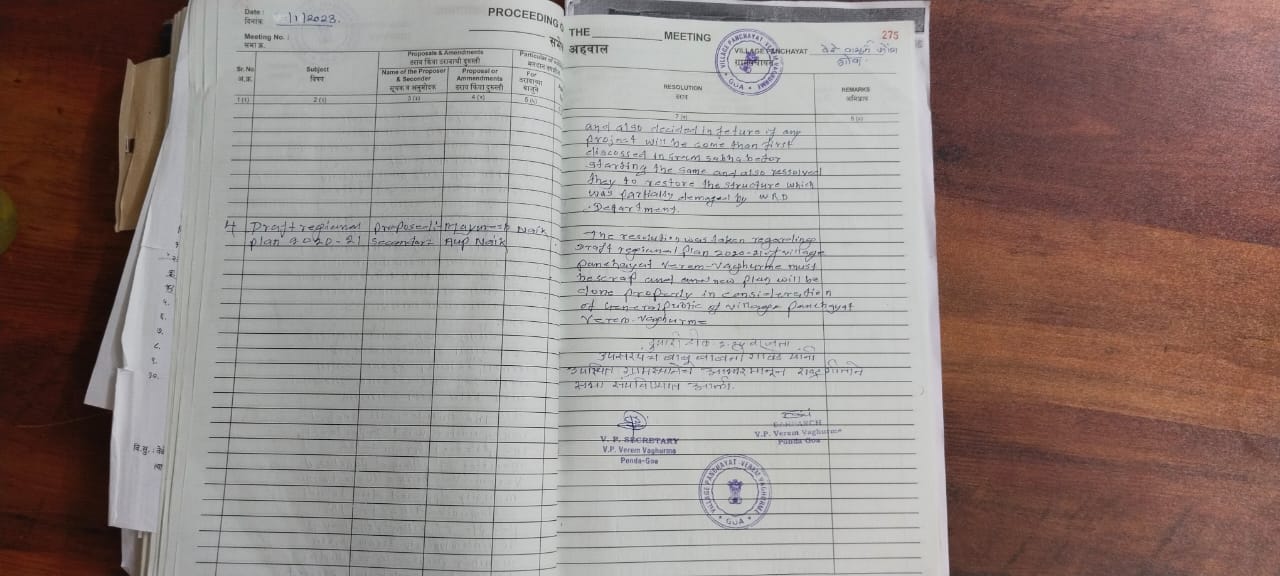 Date :
दिनांक /1/2023.
Meeting No. :
सभा क्र.
PROCEEDING
THE ________ MEETING
अहवाल
275
VILLAGE PANCHAYAT
ग्रामपंचायत
VILLAGE PANCHAYAT VEREM VAGHURME
GOA
Sr. No.
अ.क्र.
Subject
विषय
Proposals & Amendments
ठराव किंवा ठरावाची दुरुस्ती
Name of the Proposer
& Seconder
सूचक व अनुमोदक
Proposal or
Ammendments
ठराव किंवा दुरुस्ती
For
ठरावाच्या
बाजूने
RESOLUTION
ठराव
REMARKS
अभिप्राय
1 (१)
2 (२)
3 (३)
4 (४)
5 (५)
7 (७)
8 (८)
and also decided in feture if any
project will be come than first
discossed in gram sabha befor
starting the same and also ressolved
they to restore the structure which
was partially demaged by WRD
Department.
4 Draft regional proposed: Mayuresh Naik
plan 2020-21 Seconder: Aup Naik
The resolution was taken regarding
Draft regional plan 2020-21 of village
panchayat Verem-Vaghurme must
be scrap and new plan will be
done properly in consideration
of General public of village panchayat
Verem-Vaghurme
उपसरपंच बाबू
उपस्थित ग्रामस्थांचे आभार मानून राष्ट्रगीताने
सभा संपविण्यात आली.
V. P. SECRETARY
V.P. Verem Vaghurme
Ponda-Goa
SARPANCH
V.P. Verem Vaghurme
Ponda Goa
VILLAGE PANCHAYAT-VEREM VAGHURME
GOA